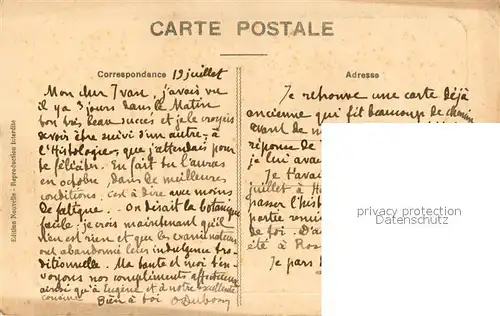 CARTE POSTALE
Correspondance 19 juillet
Mon cher Ivan, j'avais vu
il y a 3 jours dans le Matin
ton très beau succès et je le croyais
devoir être suivi d'un autre, à
l'Histologie, que j'attendais pour
te féliciter. En fait tu l'auras
en octobre, dans de meilleures
conditions, c'est à dire avec moins
de fatigue... On disait la botanique
facile; je crois maintenant qu'il
n'en est rien et que les examinateurs
ont abandonné leur indulgence tra-
ditionnelle. Ma tante et moi t'en-
voyons nos compliments affectueux
ainsi qu'à Eugène et à notre excellente
cousine. Bien à toi
Editions Nouvelle - Reproduction Interdite
Adresse
Je retrouve une carte déjà
ancienne qui fit beaucoup de chemin
avant de
réponse de
je lui avai
Je t'avai
juillet à
passer l'hist
partie remi
de toi. D'a
été à Ros
Je pars
privacy protection
watermark